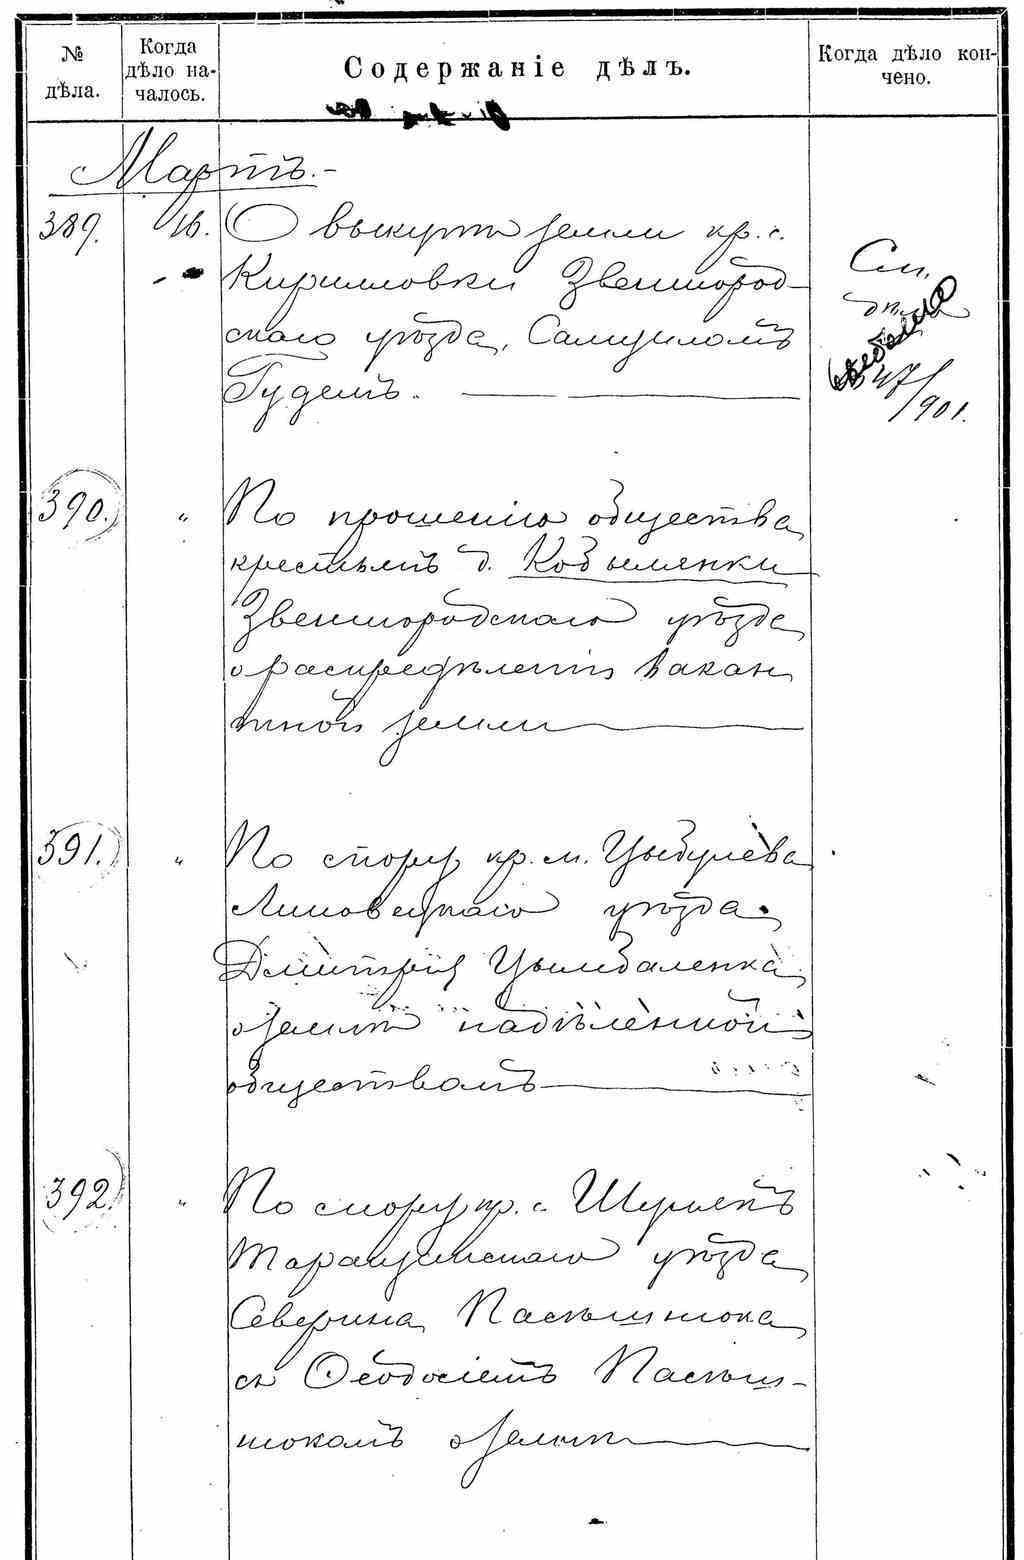 № дѣла.
Когда дѣло на-
чалось.
Содержаніе дѣлъ.
Когда дѣло кон-
чено.
Мартъ.-
389. 16. О выкупѣ земли кр. с.
Кирилловки Звенигород-
скаго уѣзда, Самуиломъ
Гудемъ.
См.
дѣло
547/901.
390. " По прошенію общества
крестьянъ д. Кобылянки
Звенигородскаго уѣзда
о распредѣленіи вакан
тной земли
391. " По спору кр. м. Цыбулева
Липовецкаго уѣзда
Дмитрія Цымбаленка
о землѣ надѣленной
обществомъ
392. " По спору кр. с.
Таращанскаго уѣзда
Северина
съ Ѳеодосіемъ
о землѣ